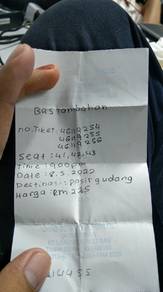 Bas tambahan
no. Tiket: 4649254
4649255
4649256
seat : 41,42,43
Time : 9.00pm
Date : 8.5.2022
Destinasi : pasir gudang
Harga : RM 225